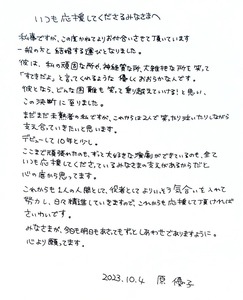 いつも応援してくださるみなさまへ
私事ですが、この度かねてよりお付き合いさせて頂いています
一般の方と結婚する運びとなりました。
彼は、私の頑固な所や、神経質な所、大雑把な所も笑って
「すてきだよ」と言ってくれるような優しくおおらかな人です。
彼となら、どんな困難も笑って乗り越えていける！と思い、
この決断に至りました。
まだまだ未熟者の私ですが、これからは2人で笑ったり泣いたりしながら
支え合っていきたいと思います。
デビューして10年と少し。
ここまで頑張れたのも、ずっと大好きな演劇ができているのも、全て
いつも応援してくださっているみなさまの支えがあるからだと
心の底から思っています。
これからも1人の人間として、役者としてよりいっそう気合いを入れて
努力し、日々精進していきますので、これからも応援して頂ければ
さいわいです。
みなさまが、今日も明日もあさってもずっとしあわせでありますように。
心より願ってます。
2023.10.4 原 優子